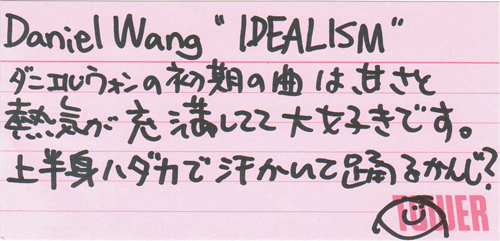 Daniel Wang "IDEALISM"
ダニエルウォンの初期の曲は甘さと
熱気が充満してて大好きです。
上半身ハダカで汗かいて踊るかんじ?
TOWER